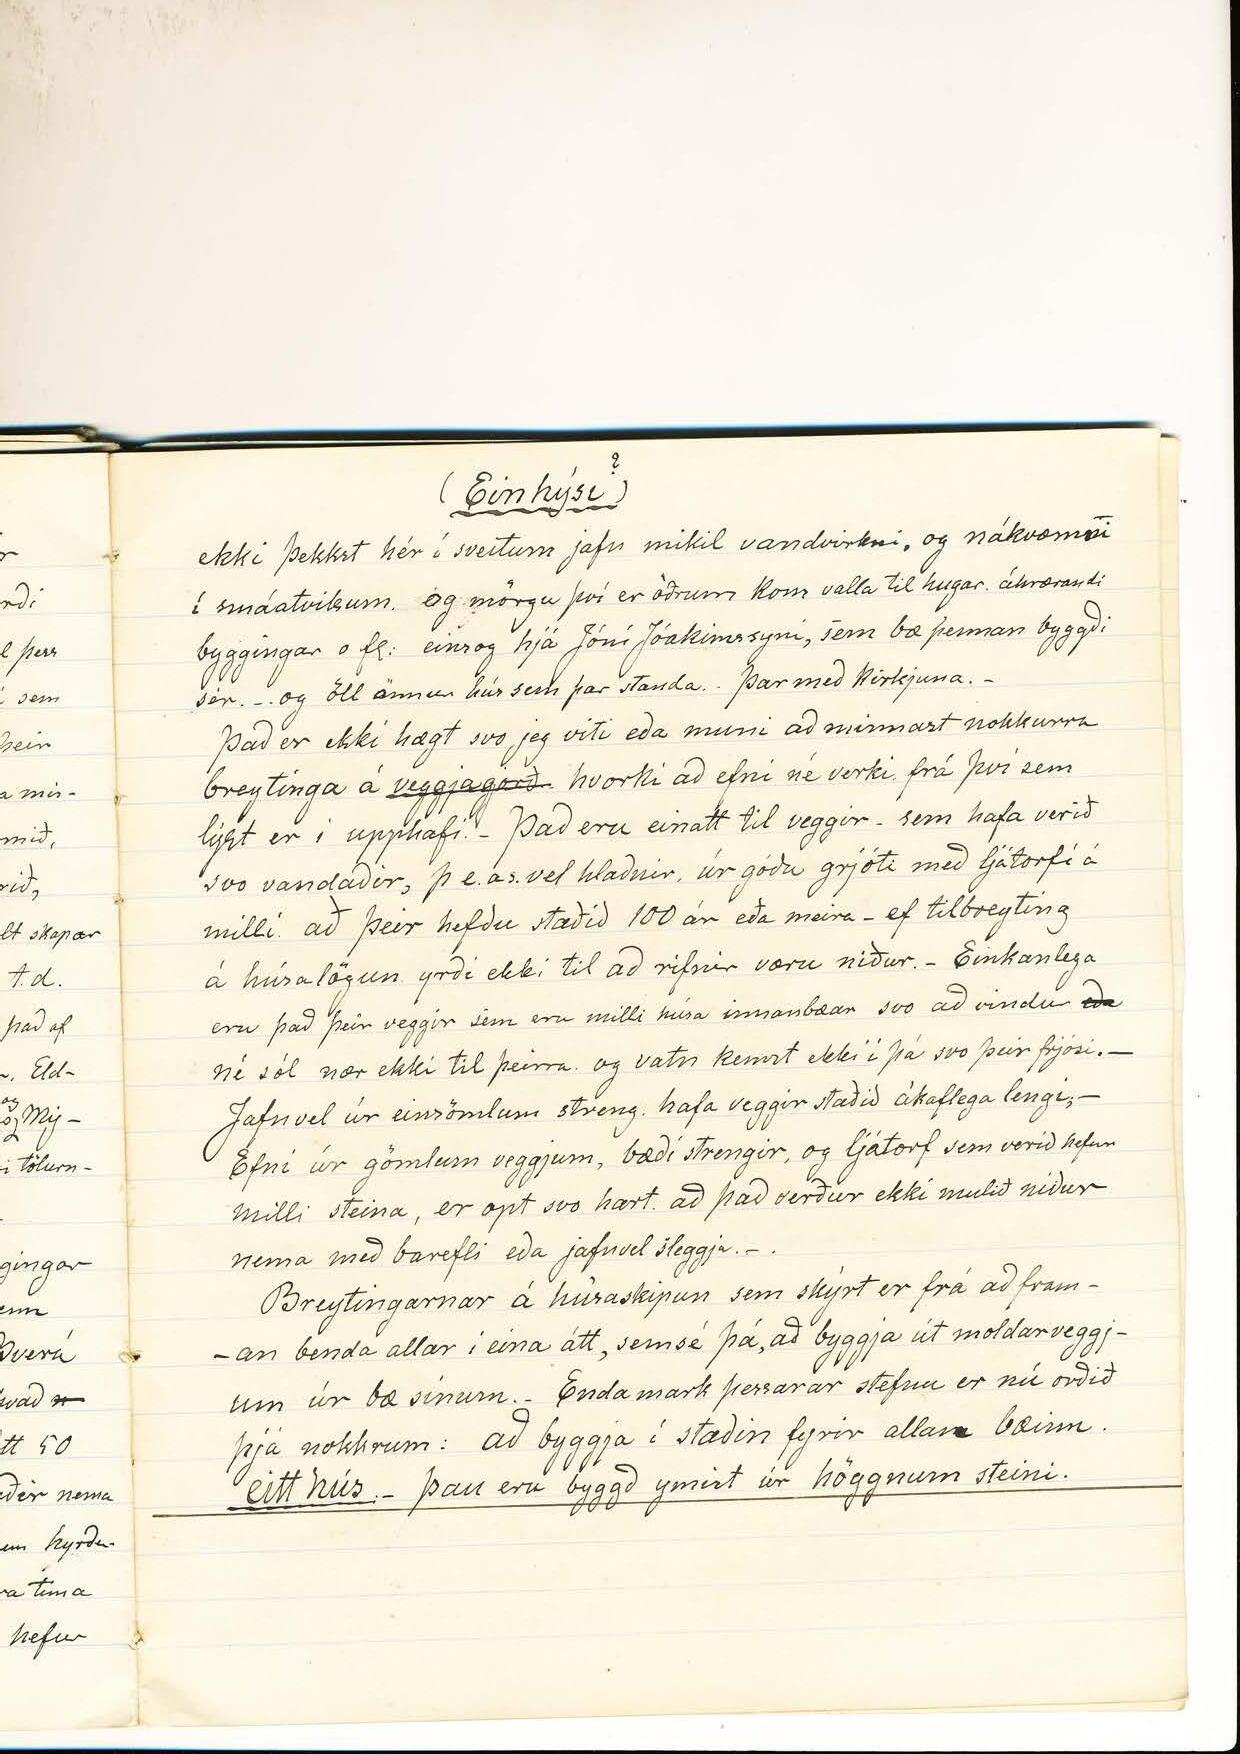 r
rði
l þess
sem
þeir
a mis-
mið,
rið,
lt skapar
t.d.
það af
r. Eld-
og Mý-
i tölum-
gingar
enn
Þverá
hvað
tt 50
eðir nema
em hyrðu-
ra tíma
hefur
(Einhýsi?)
ekki þekkst hér í sveitum jafn mikil vandvirkni, og nákvæmni
í smáatvikum. og mörgu því er öðrum kom valla til hugar. áhrærandi
byggingar o fl: einsog hjá Jóni Jóakimssyni, sem bæ þennan byggði
sér. - og öll önnur hús sem þar standa.. Þar með kirkjuna. -
Það er ekki hægt svo jeg viti eða muni að minnast nokkurra
breytinga á veggjagjörð hvorki að efni né verki. frá því sem
lýst er í upphafi. - Það eru einatt til veggir - sem hafa verið
svo vandaðir, þ e. a s. vel hlaðnir, úr góðu grjóti með ljátorfi á
milli. að þeir hefðu staðið 100 ár eða meira - ef tilbreyting
á húsalögun yrði ekki til að rifnir væru niður. - Einkanlega
eru það þeir veggir sem eru milli húsa innanbæar svo að vindur eða
né sól nær ekki til þeirra. og vatn kemst ekki í þá svo þeir frjósi. -
Jafnvel úr einsömlum streng. hafa veggir staðið ákaflega lengi, -
Efni úr gömlum veggjum, bæði strengir, og ljátorf sem verið hefur
milli steina, er opt svo hart. að það verður ekki mulið niður
nema með barefli eða jafnvel sleggju. - .
Breytingarnar á húsaskipun sem skýrt er frá að fram-
-an benda allar í eina átt, semsé þá, að byggja út moldarveggj-
um úr bæ sínum. - Endamark þessarar stefnu er nú orðið
hjá nokkrum: að byggja í staðin fyrir allan bæinn.
eitt hús. - Þau eru byggð ymist úr höggnum steini.